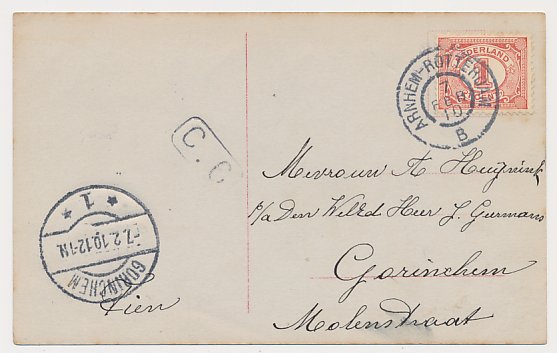 NEDERLAND
1
CENT
ARNHEM-ROTTERDAM
7
FEB
10
B
C. C
Mevrouw A
p/a Den WelEd Heer J. Germans
Gorinchem
Molenstraat
1
-7.2.10.12-1N
GORINCHEM
Tien